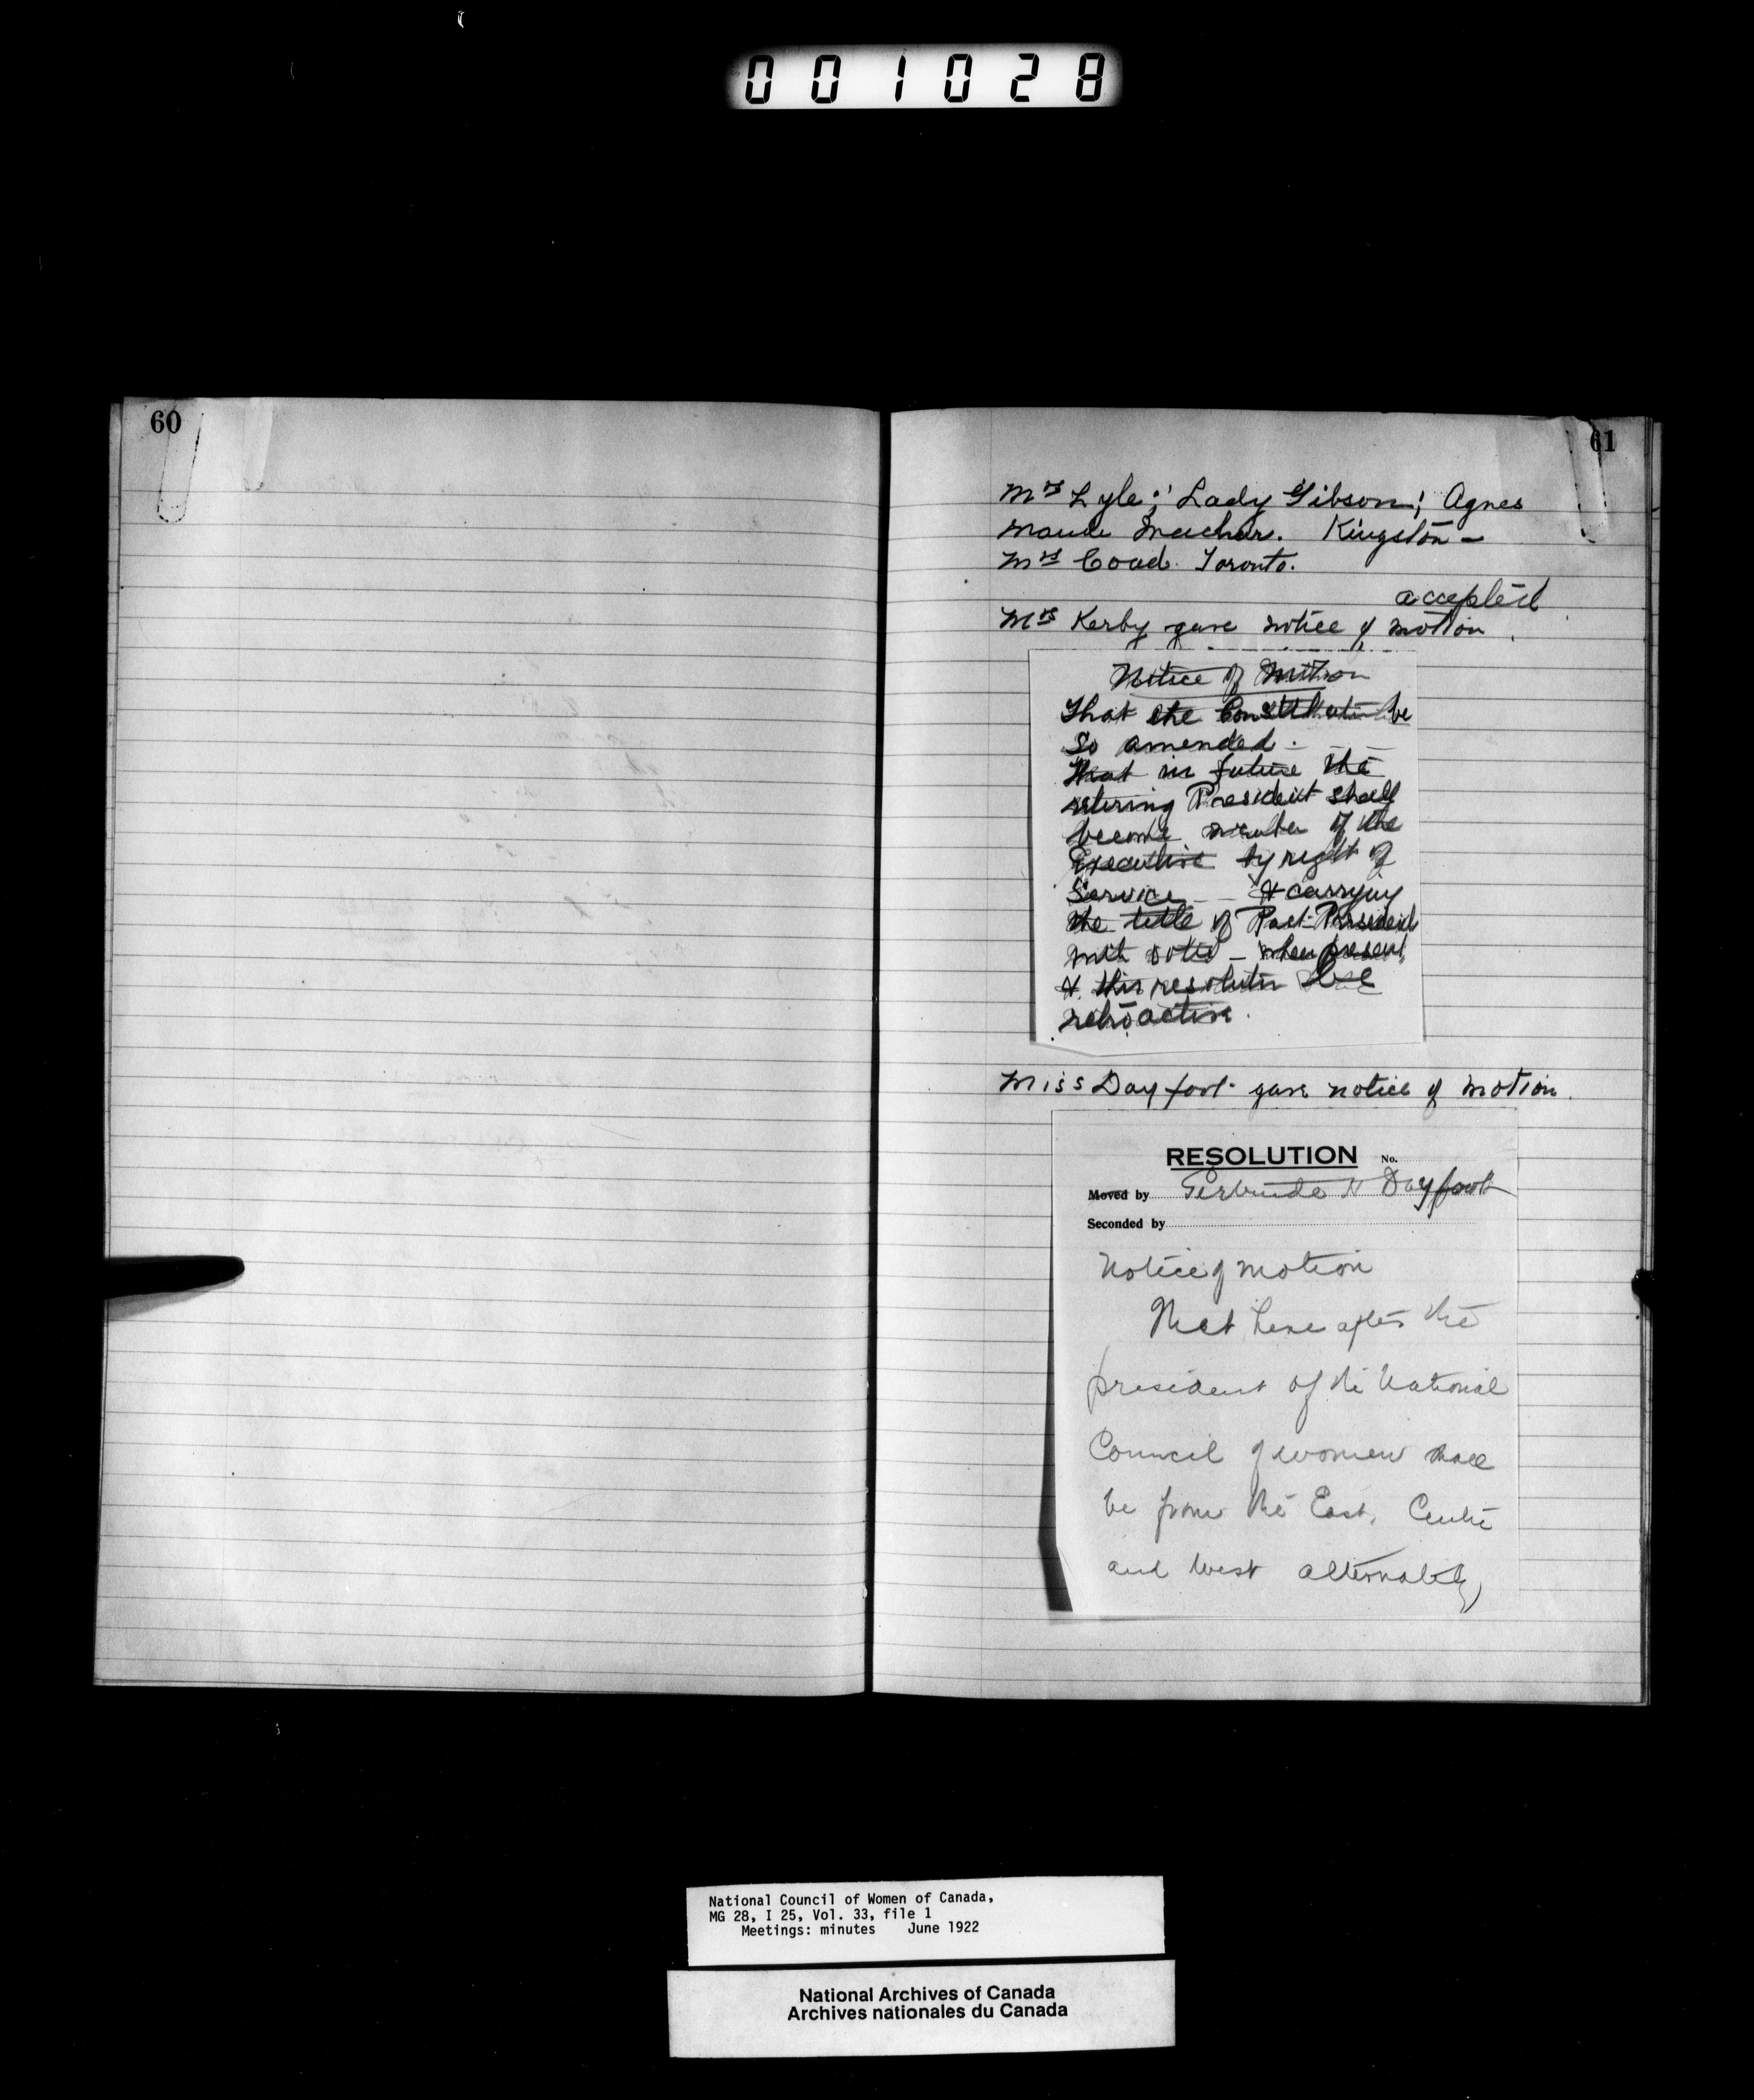 001028
60
61
Mrs Lyle; Lady Gibson; Agnes
Maude Machar. Kingston -
Mrs Coad. Toronto.
accepted
Mrs Kerby gave notice of motion.
Notice of Motion
That the Constitution be
so amended. -
That in future the
retiring President shall
become member of the
Executive by right of
Service - & carrying
the title of Past-President
with vote - when present,
& this resolution be
retroactive.
Miss Dayfoot gave notice of motion.
RESOLUTION No.
Moved by Gertrude H Dayfoot
Seconded by
Notice of motion
That here after the
president of the National
Council of women shall
be from the East, Centre
and West alternately
National Council of Women of Canada,
MG 28, I 25, Vol. 33, file 1
Meetings: minutes June 1922
National Archives of Canada
Archives nationales du Canada